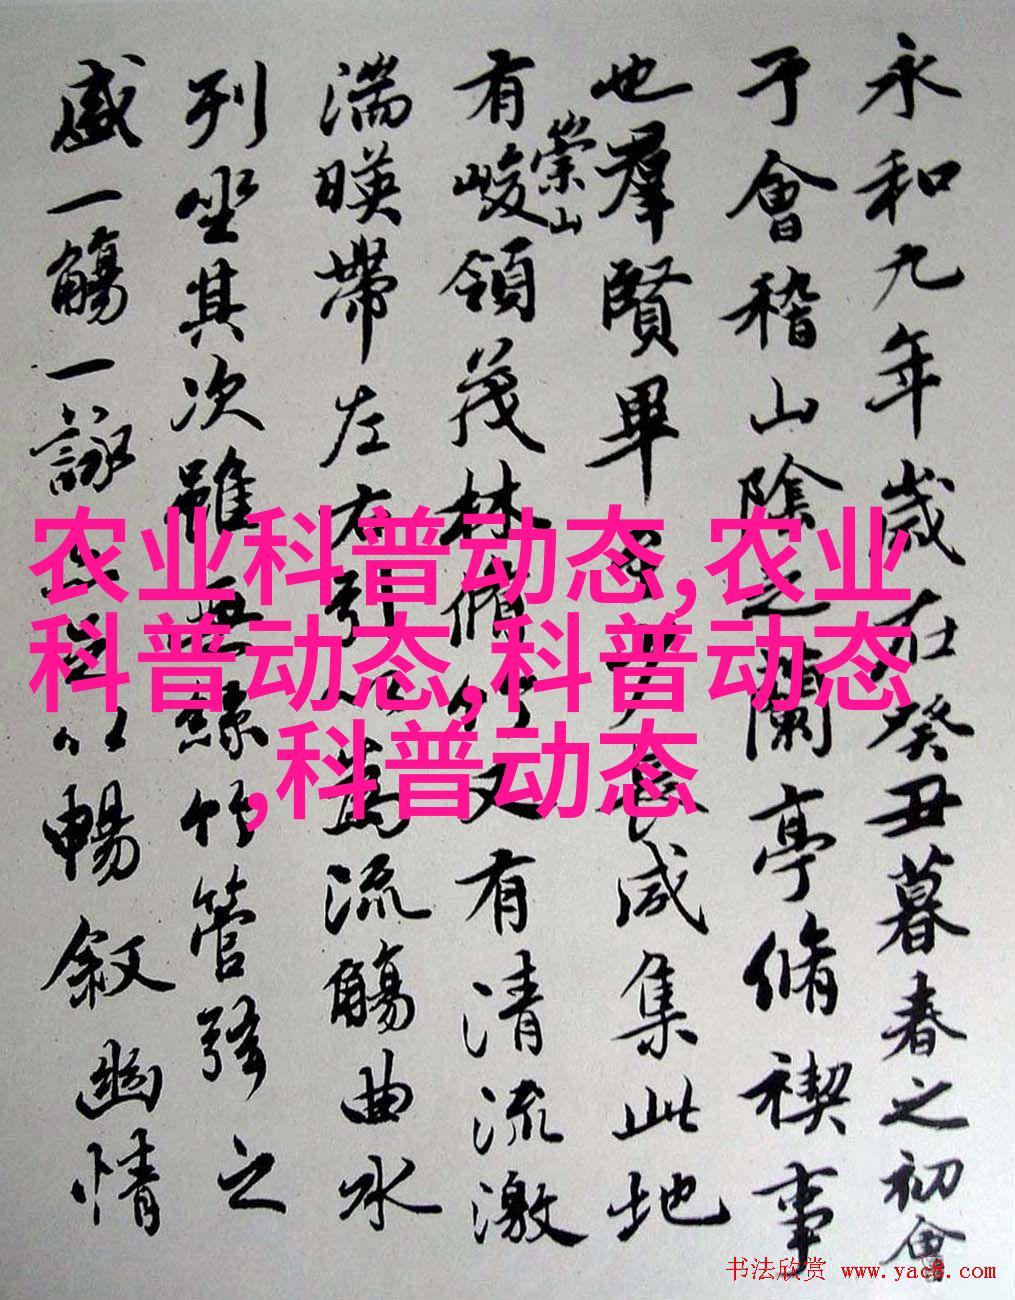 永和九年歲在癸丑暮春之初會
于會稽山陰之蘭亭脩禊事
也羣賢畢至少長咸集此地
有崇山峻領茂林脩竹又有清流激
湍暎帶左右引以為流觴曲水
列坐其次雖無絲竹管弦之
盛一觴一詠亦足以暢敘幽情
农业科普动态,农业
科普动态,科普动态
,科普动态
书法欣赏 www.yac8.com